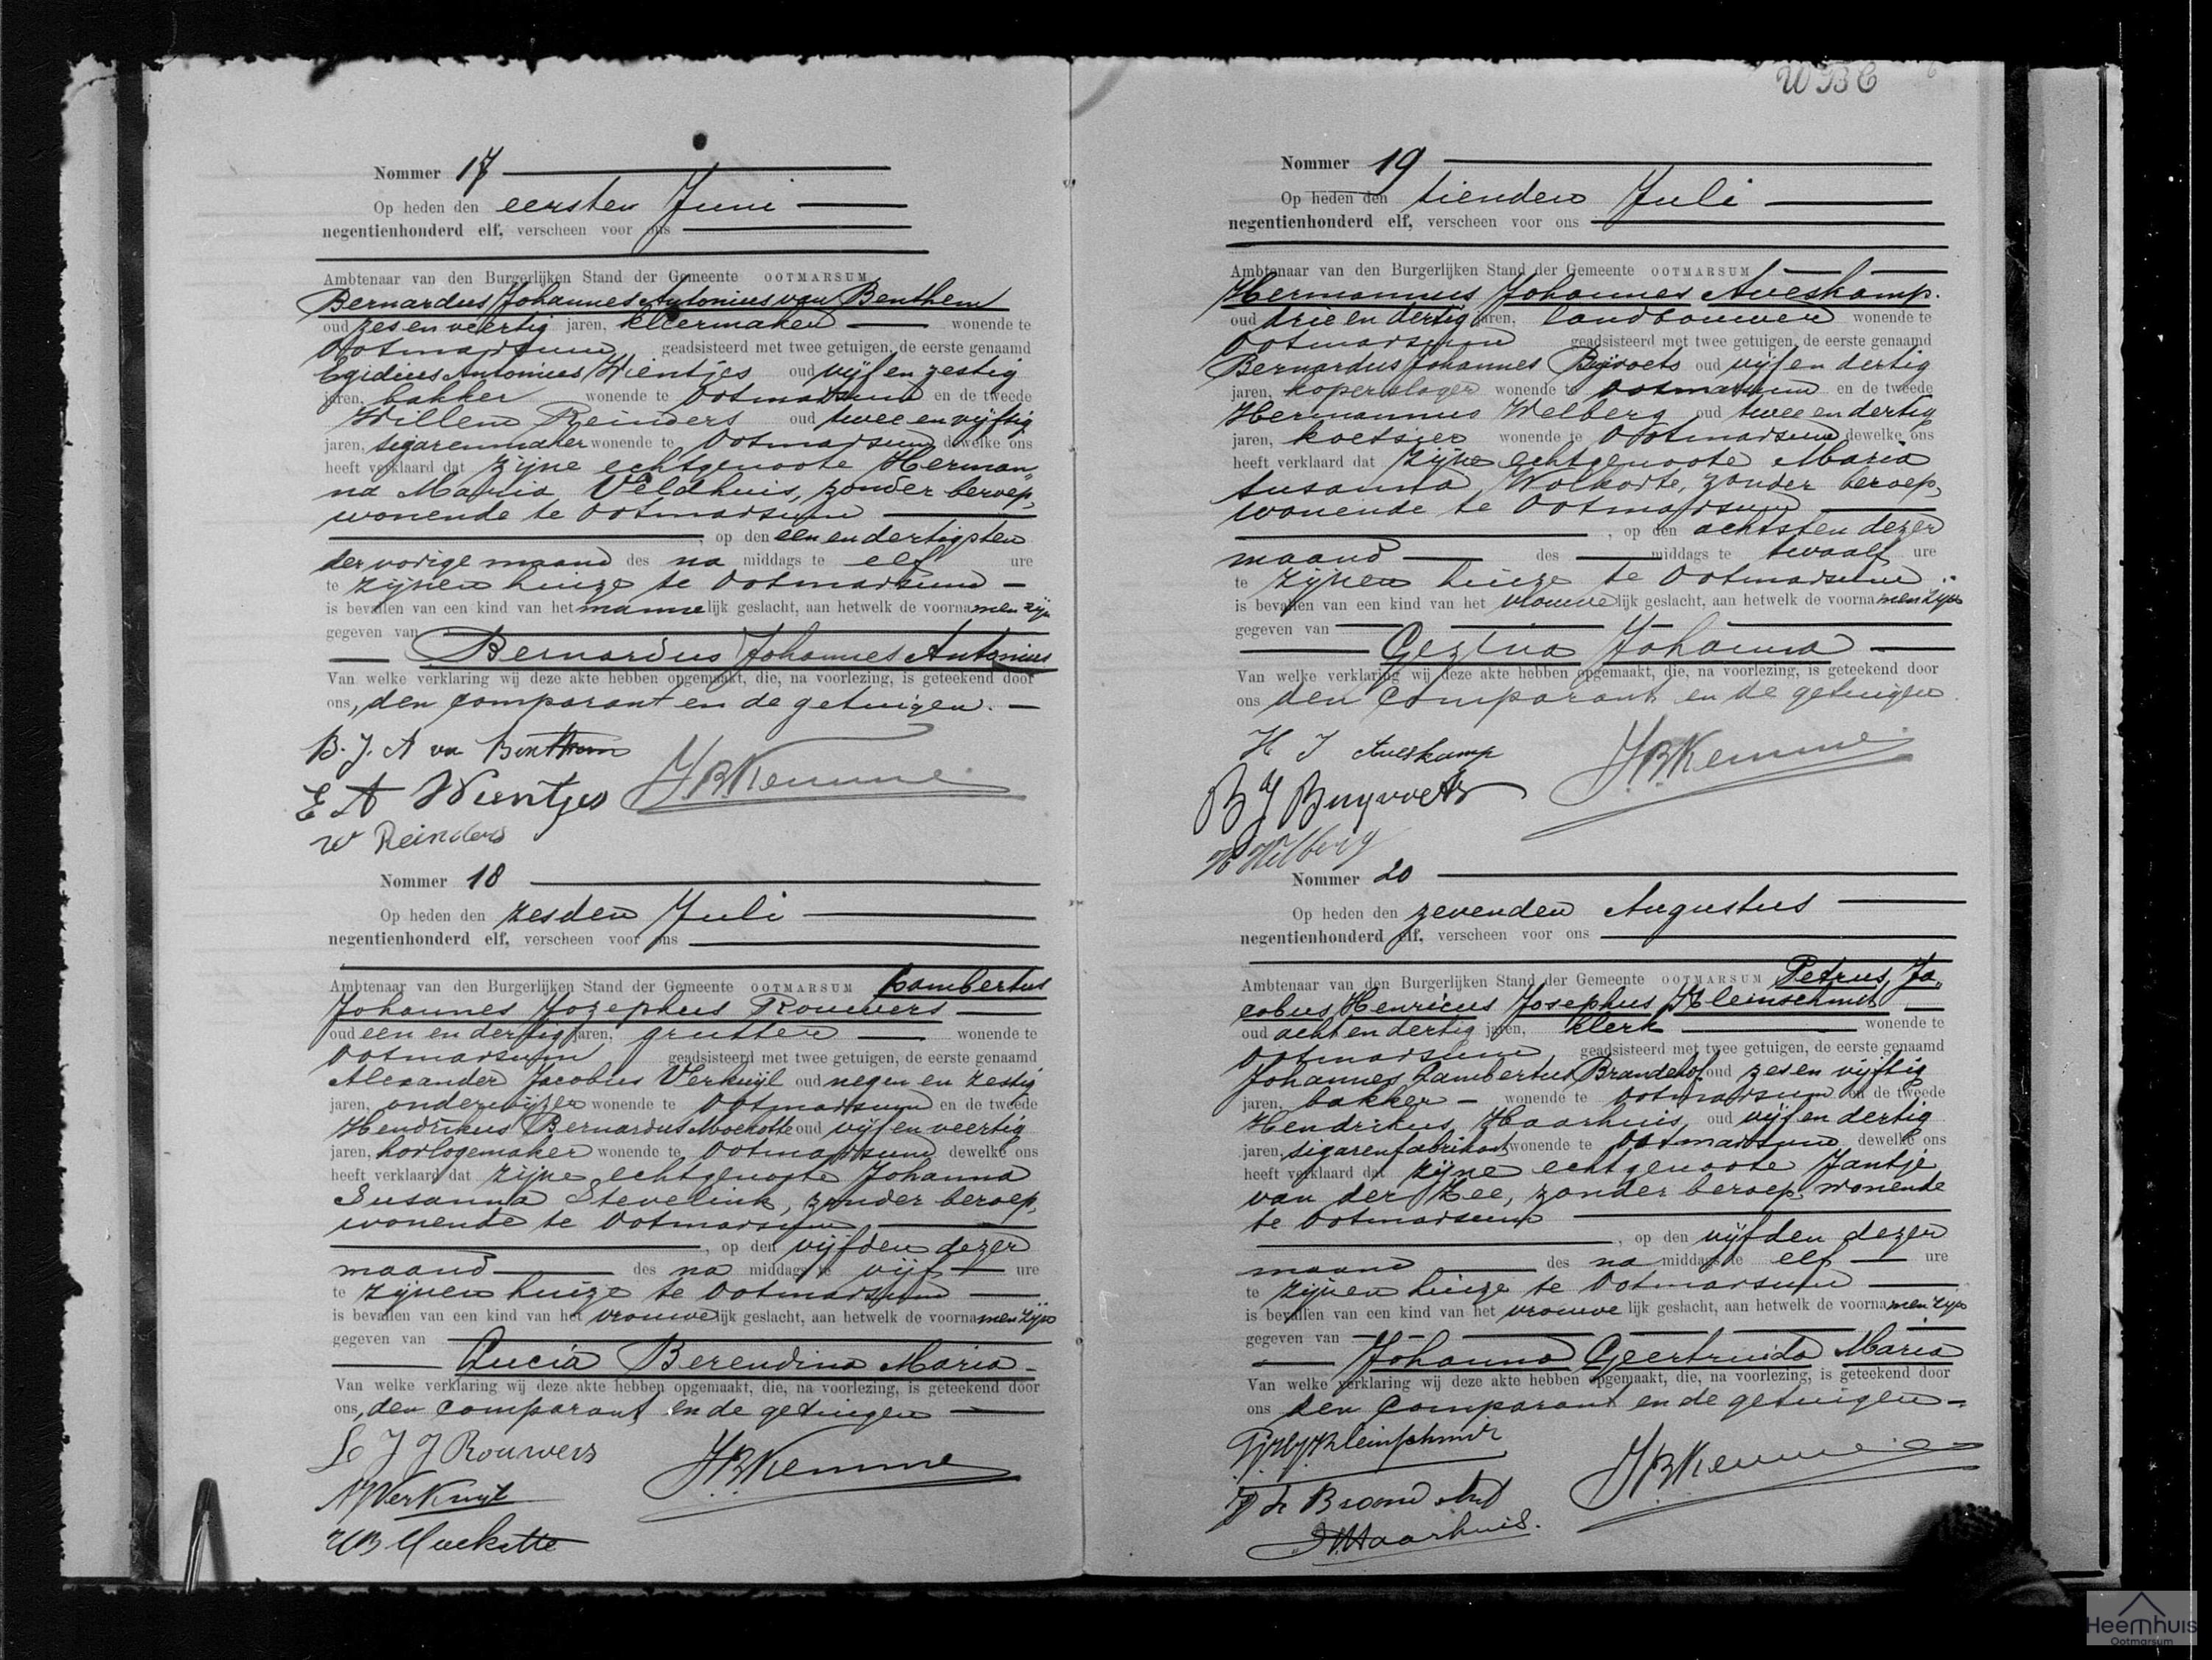 Nommer 17
Op heden den eersten Juni
negentienhonderd elf, verscheen voor ons
Ambtenaar van den Burgerlijken Stand der Gemeente OOTMARSUM
Bernardus Johannes Antonius van Benthem
oud zes en veertig jaren, kleermaker wonende te
Ootmarsum geadsisteerd met twee getuigen, de eerste genaamd
Egidius Antonius Wientjes oud vijf en zestig
jaren, bakker wonende te Ootmarsum en de tweede
Willem Reinders oud twee en vijftig
jaren, sigarenmaker wonende te Ootmarsum dewelke ons
heeft verklaard dat zijne echtgenoote Herman„
na Maria Veldhuis, zonder beroep,
wonende te Ootmarsum
, op den een en dertigsten
der vorige maand des na middags te elf ure
te zijnen huize te Ootmarsum
is bevallen van een kind van het mannelijk geslacht, aan hetwelk de voornamen zijn
gegeven van
Bernardus Johannes Antonius
Van welke verklaring wij deze akte hebben opgemaakt, die, na voorlezing, is geteekend door
ons, den comparant en de getuigen.
B. J. A van Benthem
E A Wientjes J.B.Kemme
W Reinders
Nommer 18
Op heden den zesden Juli
negentienhonderd elf, verscheen voor ons
Ambtenaar van den Burgerlijken Stand der Gemeente OOTMARSUM Lambertus
Johannes Jozephus Rouwers
oud een en dertig jaren, grutter wonende te
Ootmarsum geadsisteerd met twee getuigen, de eerste genaamd
Alexander Jacobus Verkuijl oud negen en zestig
jaren, onderwijzer wonende te Ootmarsum en de tweede
Hendrikus Bernardus Moekotte oud vijf en veertig
jaren, horlogemaker wonende te Ootmarsum dewelke ons
heeft verklaard dat zijne echtgenoote Johanna
Susanna Stevelink, zonder beroep,
wonende te Ootmarsum
, op den vijfden dezer
maand des na middags te vijf ure
te zijnen huize te Ootmarsum
is bevallen van een kind van het vrouwelijk geslacht, aan hetwelk de voornamen zijn
gegeven van
Lucia Berendina Maria
Van welke verklaring wij deze akte hebben opgemaakt, die, na voorlezing, is geteekend door
ons, den comparant en de getuigen
L J J Rouwers J.B.Kemme
AJVerkuyl
HB Moekotte
WBC
Nommer 19
Op heden den tienden Juli
negentienhonderd elf, verscheen voor ons
Ambtenaar van den Burgerlijken Stand der Gemeente OOTMARSUM
Hermannus Johannes Aveskamp.
oud drie en dertig jaren, landbouwer wonende te
Ootmarsum geadsisteerd met twee getuigen, de eerste genaamd
Bernardus Johannes Buijvoets oud vijf en dertig
jaren, koperslager wonende te Ootmarsum en de tweede
Hermannus Welberg oud twee en dertig
jaren, koetsier wonende te Ootmarsum dewelke ons
heeft verklaard dat zijne echtgenoote Maria
Susanna Wolkorte, zonder beroep,
wonende te Ootmarsum
, op den achtsten dezer
maand des middags te twaalf ure
te zijnen huize te Ootmarsum
is bevallen van een kind van het vrouwelijk geslacht, aan hetwelk de voornamen zijn
gegeven van
Gezina Johanna
Van welke verklaring wij deze akte hebben opgemaakt, die, na voorlezing, is geteekend door
ons den comparant en de getuigen
H J Aveskamp J.B.Kemme
B J Buyvoets
H Welberg
Nommer 20
Op heden den zevenden Augustus
negentienhonderd elf, verscheen voor ons
Ambtenaar van den Burgerlijken Stand der Gemeente OOTMARSUM Petrus Ja„
cobus Henricus Josephus Kleinschmidt
oud acht en dertig jaren, klerk wonende te
Ootmarsum geadsisteerd met twee getuigen, de eerste genaamd
Johannes Lambertus Brandehof oud zes en vijftig
jaren, bakker wonende te Ootmarsum en de tweede
Hendrikus Haarhuis, oud vijf en dertig
jaren, sigarenfabrikant wonende te Ootmarsum dewelke ons
heeft verklaard dat zijne echtgenoote Jantje
van der Zee, zonder beroep, wonende
te Ootmarsum
, op den vijfden dezer
maand des na middags te elf ure
te zijnen huize te Ootmarsum
is bevallen van een kind van het vrouwelijk geslacht, aan hetwelk de voornamen zijn
gegeven van
Johanna Geertruida Maria
Van welke verklaring wij deze akte hebben opgemaakt, die, na voorlezing, is geteekend door
ons den comparant en de getuigen
PJHJKleinschmidt J.B.Kemme
Haarhuis.
Heemhuis
Ootmarsum